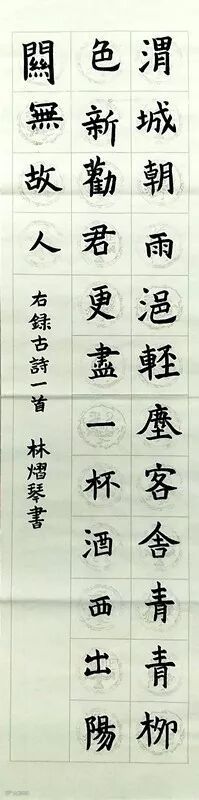 渭城朝雨浥輕塵客舍青青柳
色新勸君更盡一杯酒西出陽
關無故人
右録古詩一首 林熠琴書